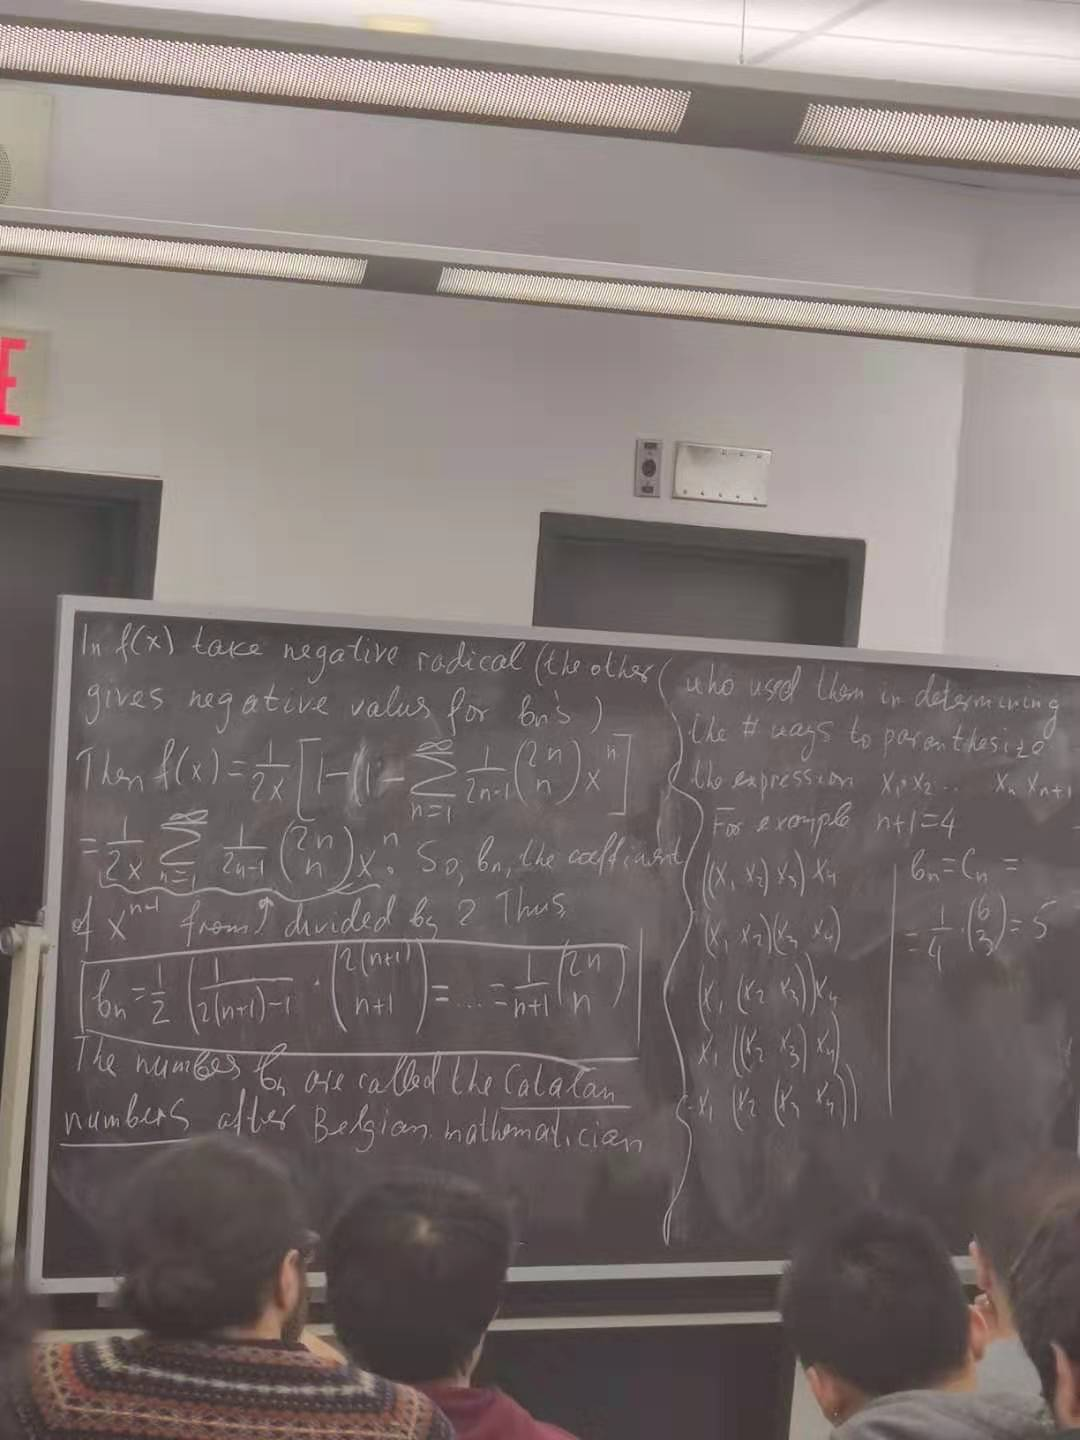 E
In f(x) take negative radical (the other
gives negative value for bn's)
Then f(x) = 1/2x [1-(1- ∞ Σ n=1 1/2n-1 (2n n) x^n]
= 1/2x ∞ Σ n=1 1/2n-1 (2n n) x^n. So, bn, the coefficient
of x^n+1 from ↑ divided by 2 Thus,
bn = 1/2 (1/2(n+1)-1 · (2(n+1) n+1) = ... = 1/n+1 (2n n)
The numbers bn are called the Catalan
numbers after Belgian mathematician
who used them in determining
the # ways to parenthesize
the expression x1·x2 ... xn xn+1
For example n+1=4
((x1 x2) x3) x4
(x1 x2)(x3 x4)
(x1 (x2 x3)) x4
x1 ((x2 x3) x4)
x1 (x2 (x3 x4))
bn = Cn =
= 1/4 · (6 3) = 5